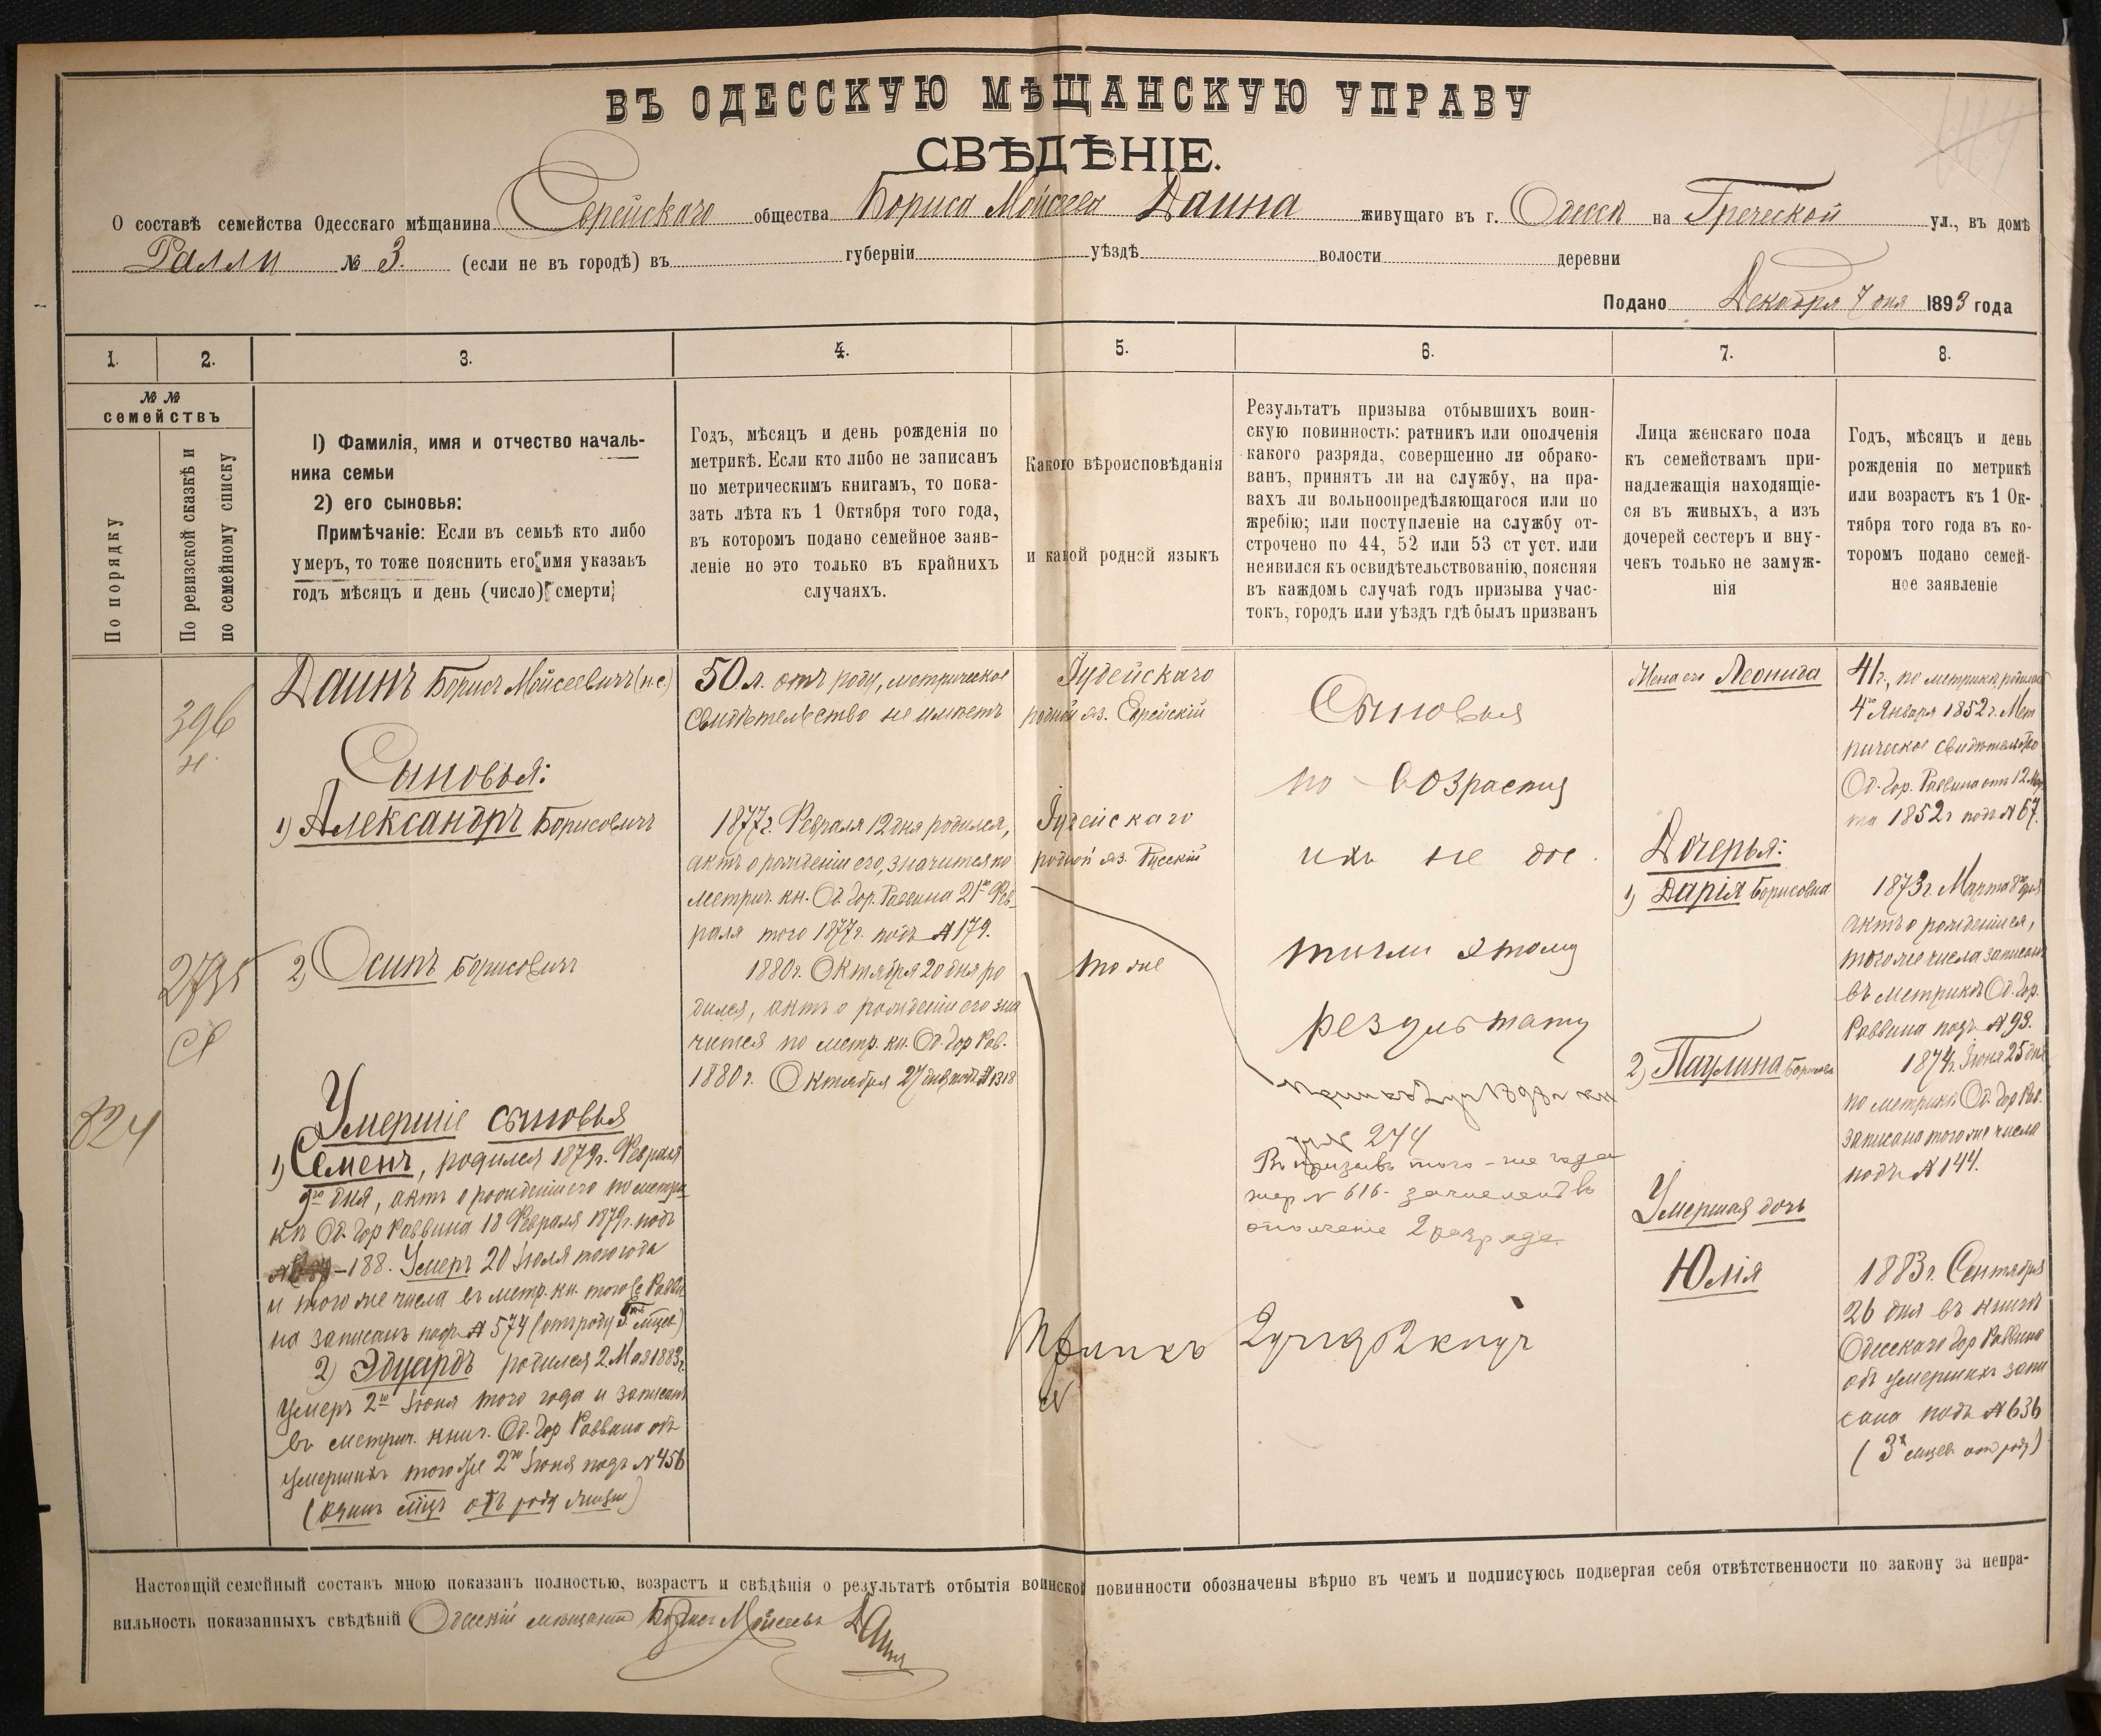 ВЪ ОДЕССКУЮ МѢЩАНСКУЮ УПРАВУ
СВѢДѢНІЕ.
О составѣ семейства Одесскаго мѣщанина Еврейскаго общества Бориса Мойсеева Даина живущаго въ г. Одесса на Греческой ул., въ домѣ
Ралли № 3. (если не въ городѣ) въ губерніи уѣздѣ волости деревни
Подано Декабря 7 дня 1893 года
1.
2.
3.
4.
5.
6.
7.
8.
№ №
семействъ
По порядку
По ревизской сказкѣ и
по семейному списку
1) Фамилія, имя и отчество началь-
ника семьи
2) его сыновья:
Примѣчаніе: Если въ семьѣ кто либо
умеръ, то тоже пояснить его имя указавъ
годъ мѣсяцъ и день (число) смерти;
Годъ, мѣсяцъ и день рожденія по
метрикѣ. Если кто либо не записанъ
по метрическимъ книгамъ, то пока-
зать лѣта къ 1 Октября того года,
въ которомъ подано семейное заяв-
леніе но это только въ крайнихъ
случаяхъ.
Какого вѣроисповѣданія
и какой родной языкъ
Результатъ призыва отбывшихъ воин-
скую повинность: ратникъ или ополченія
какого разряда, совершенно ли обрако-
ванъ, принятъ ли на службу, на пра-
вахъ ли вольноопредѣляющагося или по
жребію; или поступленіе на службу от-
строчено по 44, 52 или 53 ст уст. или
неявился къ освидѣтельствованію, поясняя
въ каждомъ случаѣ годъ призыва учас-
токъ, городъ или уѣздъ гдѣ былъ призванъ
Лица женскаго пола
къ семействамъ при-
надлежащія находящіе-
ся въ живыхъ, а изъ
дочерей сестеръ и вну-
чекъ только не замуж-
нія
Годъ, мѣсяцъ и день
рожденія по метрикѣ
или возрастъ къ 1 Ок-
тября того года въ ко-
торомъ подано семей-
ное заявленіе
824
396
н.
2735
Даинъ Борисъ Мойсеевичъ (н.с.)
Сыновья:
1) Александръ Борисовичъ
2) Осипъ Борисовичъ
Умершіе сыновья
1) Семенъ, родился 1879г. Февраля
9го дня, актъ о рожденіи его по метри
кѣ Од. Гор Раввина 18 Февраля 1879г. подъ
188. Умеръ 20 Іюля того года
и того же числа въ метр. кн. того же Равви
на записанъ подъ № 574 (отъ роду 5 мѣцев)
2) Эдуардъ родился 2 Мая 1883г.
умеръ 2го Іюня того года и записанъ
въ метрич. книг. Од. Гор Раввина объ
умершихъ того же 2го Іюня подъ № 456
(одинъ мѣц отъ роду жизни)
50 л. отъ роду, метрическое
свидѣтельство не имѣетъ
1877г. Февраля 12 дня родился,
актъ о рожденіи его, значится по
метрич. кн. Од. Гор. Раввина 21го Фев-
раля того 1877г. подъ № 179.
1880г. Октября 20 дня ро
дился, актъ о рожденіи его зна
чится по метр. кн. Од. Гор Рав.
1880г. Октября 27 дня подъ № 1318
Іудейскаго
родной яз. Еврейскій
Іудейскаго
родной яз. Русскій
тоже
Сыновья
по возрасту
ихъ не дос
тигли этому
результату
274
Въ призывъ того-же года
жер № 616 - зачисленъ въ
ополченіе 2 разряда
Жена его Леонида
Дочерья:
1) Дарія Борисовна
2) Паулина Борисовна
Умершая дочь
Юлія
41г., по метрикѣ родилась
4го Января 1852г. Мет
рическое свидѣтельство
Од. Гор. Раввина отъ 12 Мар
та 1852г подъ № 67.
1873г. Марта 8го дня
актъ о рожденіи ея,
того же числа записанъ
въ метрикѣ Од. Гор.
Раввина подъ № 93.
1874г. Іюня 25 дня
по метрикѣ Од. Гор Рав.
записана того же числа
подъ № 144.
1883г. Сентября
26 дня въ книгѣ
Одесскаго Гор Раввина
объ умершихъ запи
сана подъ № 636
(3х мѣцев отъ роду)
Настоящій семейный составъ мною показанъ полностью, возрастъ и свѣдѣнія о результатѣ отбытія воинской повинности обозначены вѣрно въ чемъ и подписуюсь подвергая себя отвѣтственности по закону за непра-
вильность показанныхъ свѣдѣній Одесскій мѣщанинъ Борисъ Мойсеевъ Даинъ